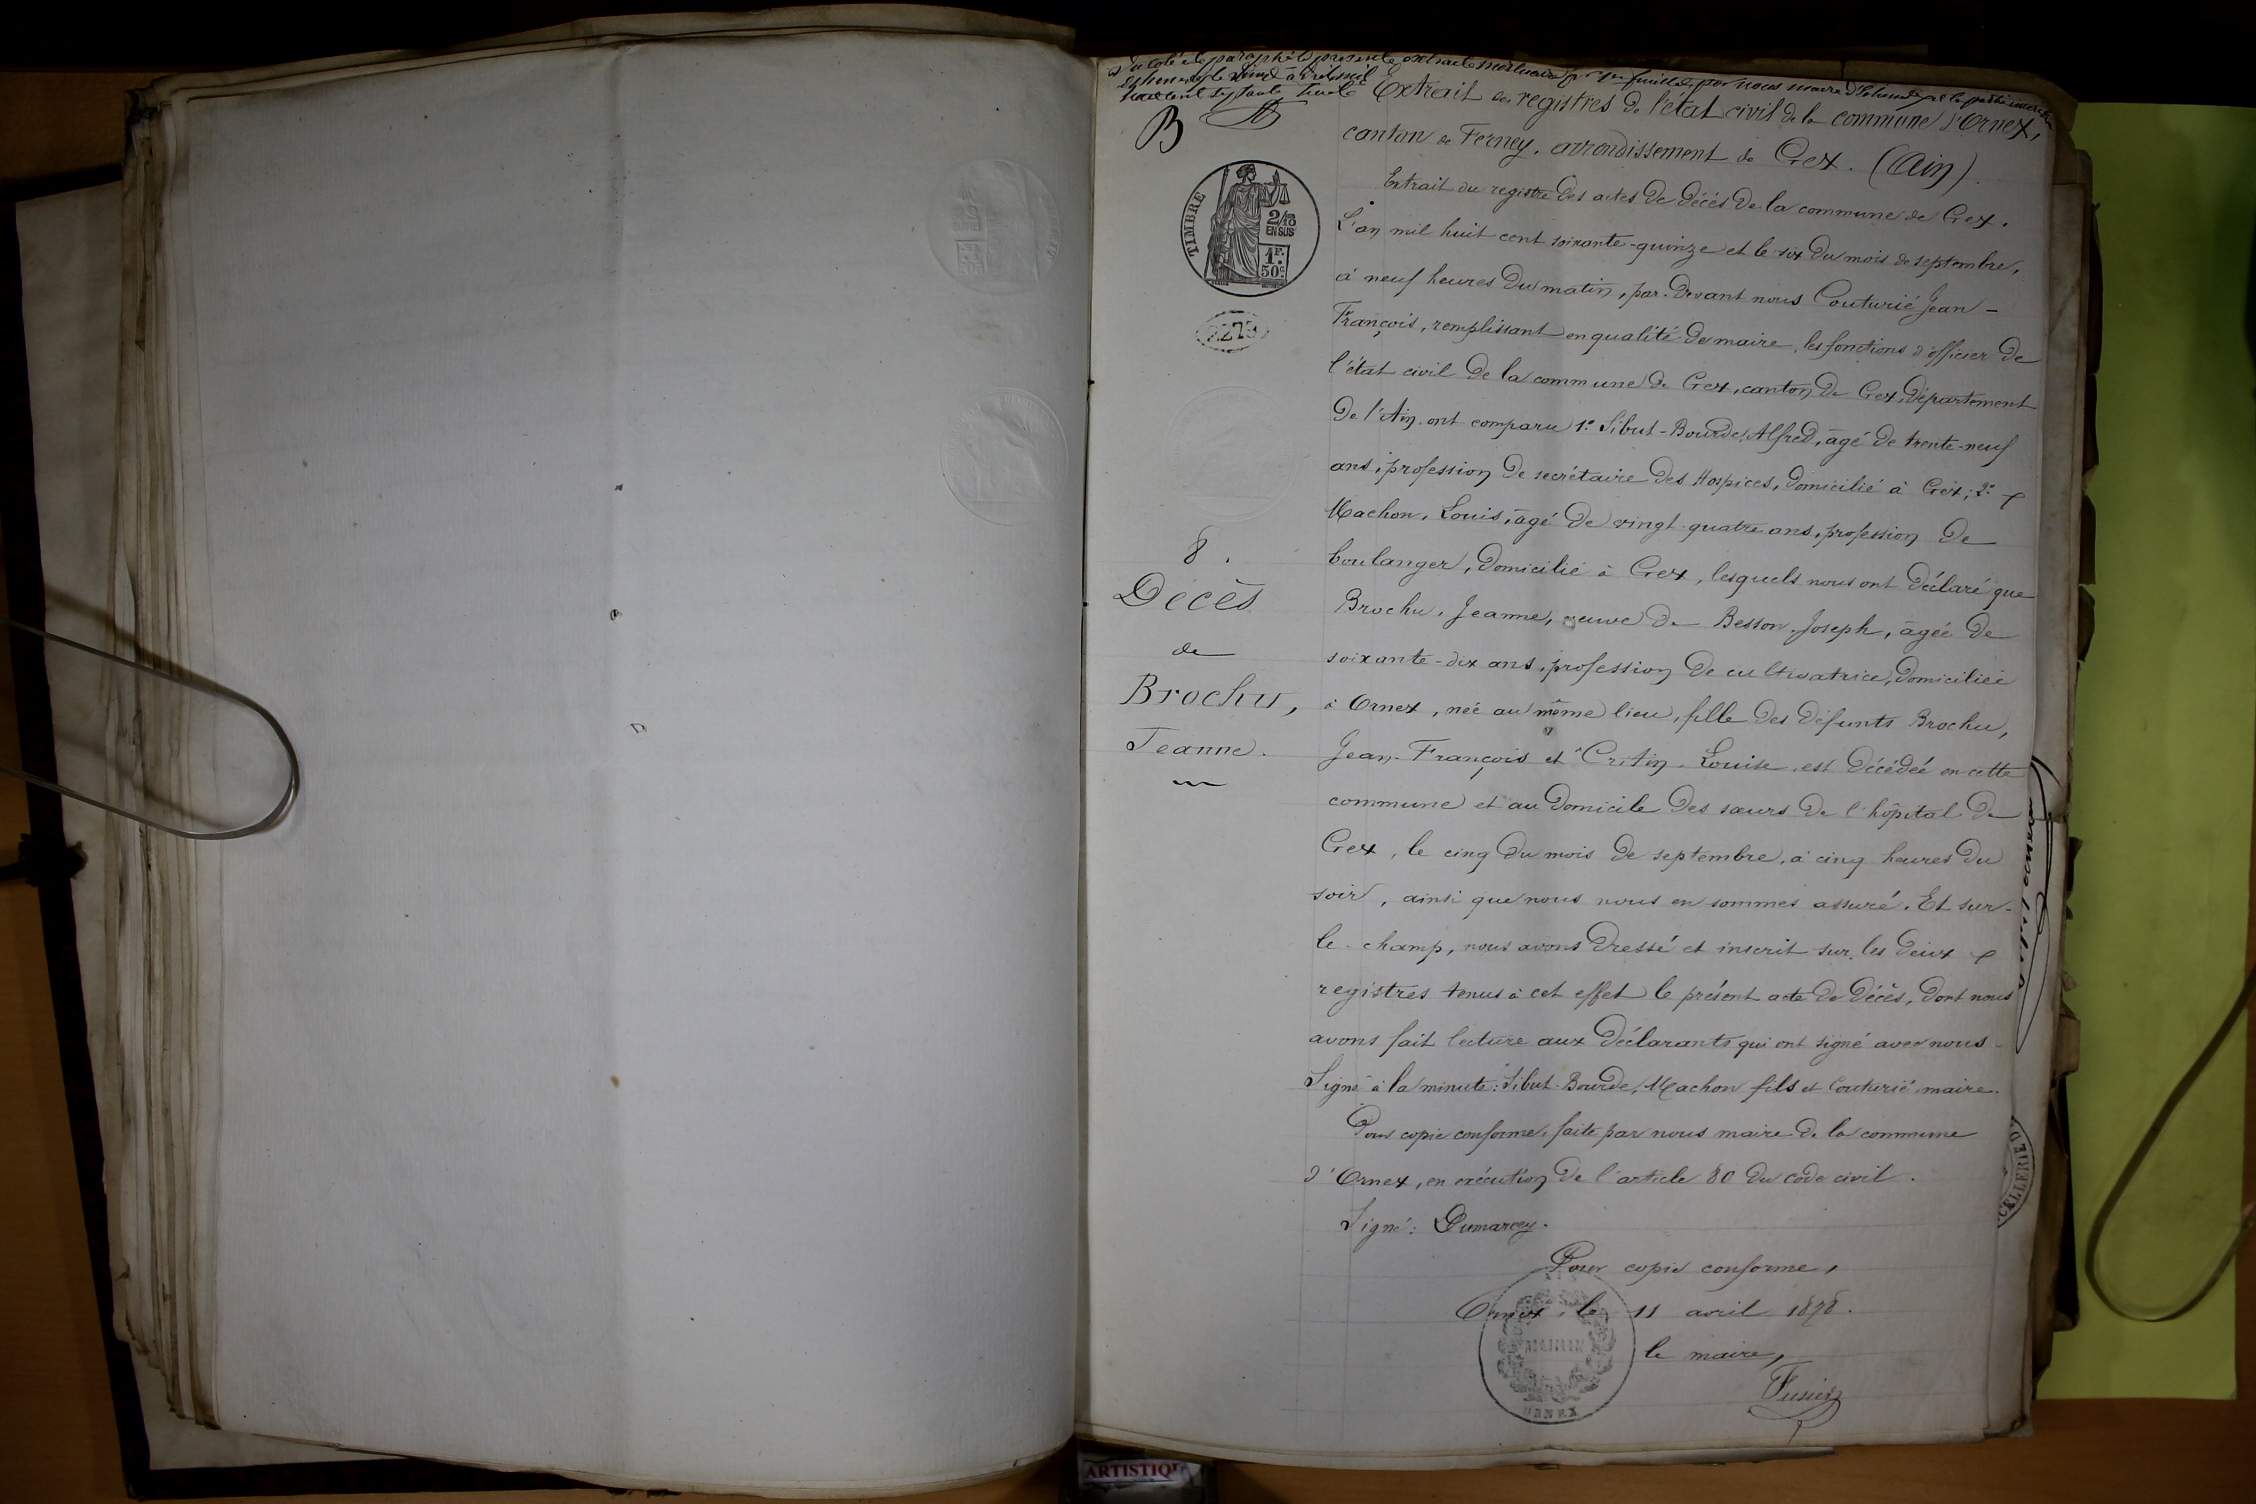 Extrait des registres de l'état civil de la commune d'Ornex,
canton de Ferney. arrondissement de Gex. (Ain).
B
TIMBRE
2/10
EN SUS
1F.
50c.
Extrait du registre des actes de décès de la commune de Gex.
L'an mil huit cent soixante-quinze et le six du mois de septembre,
à neuf heures du matin, par-devant nous Couturié Jean-
François, remplissant en qualité de maire, les fonctions d'officier de
l'état civil de la commune de Gex, canton de Gex, département
de l'Ain, ont comparu 1º Sibut-Bourde, Alfred, âgé de trente-neuf
ans, profession de secrétaire des Hospices, domicilié à Gex; 2º
Machon, Louis, âgé de vingt-quatre ans, profession de
boulanger, domicilié à Gex, lesquels nous ont déclaré que
Brochu, Jeanne, veuve de Besson Joseph, âgée de
soixante-dix ans, profession de cultivatrice, domiciliée
à Ornex, née au même lieu, fille des défunts Brochu,
Jean-François et Critin Louise, est décédée en cette
commune et au domicile des sœurs de l'hôpital de
Gex, le cinq du mois de septembre, à cinq heures du
soir, ainsi que nous nous en sommes assuré. Et sur-
le-champ, nous avons dressé et inscrit sur les deux
registres tenus à cet effet le présent acte de décès, dont nous
avons fait lecture aux déclarants qui ont signé avec nous.
Signé à la minute: Sibut-Bourde, Machon fils et Couturié maire.
Pour copie conforme, faite par nous maire de la commune
d'Ornex, en exécution de l'article 80 du code civil.
Signé: Dumarcey.
Pour copie conforme,
Ornex, le 11 avril 1878.
le maire,
8.
Décès
de
Brochu,
Jeanne.
MAIRIE
ORNEX
ARTISTIQU